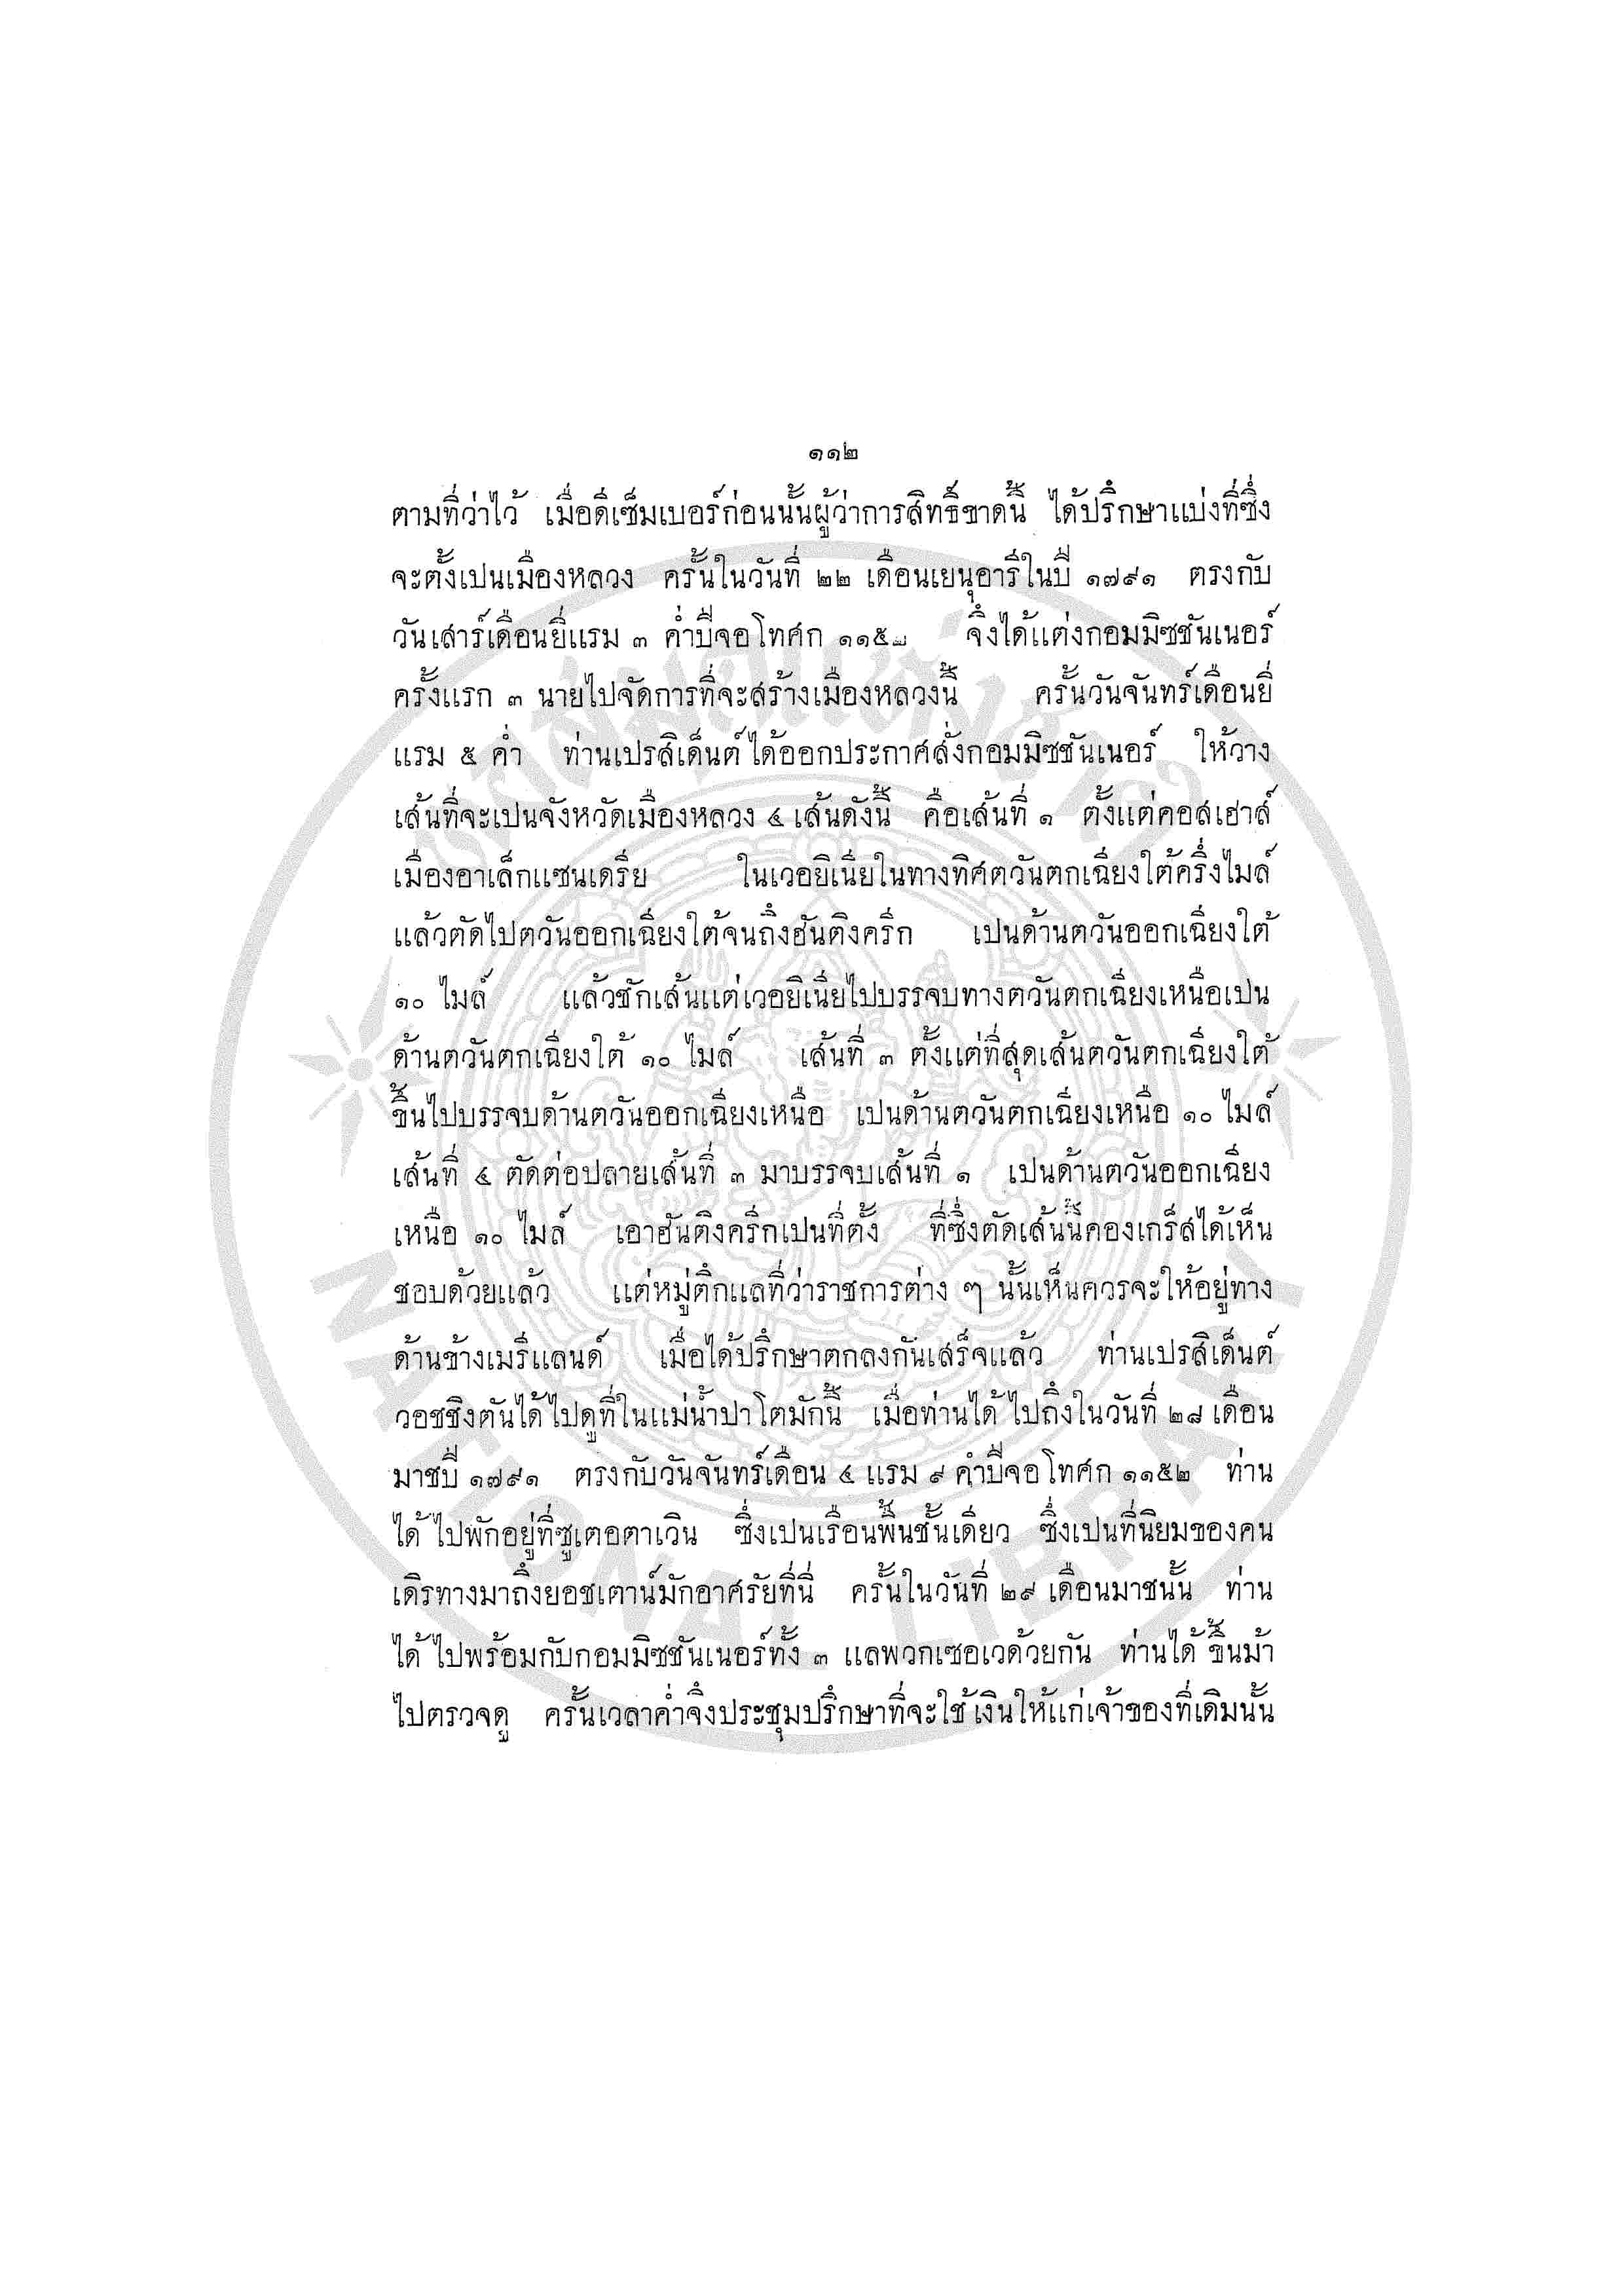 ๑๑๒
ตามที่ว่าไว้ เมื่อดิเซ็มเบอร์ก่อนนั้นผู้ว่าการสิทธิ์ขาดนี้ ได้ปรึกษาแบ่งที่ซึ่ง
จะตั้งเปนเมืองหลวง ครั้นในวันที่ ๒๒ เดือนเยนุอารีในปี ๑๗๙๑ ตรงกับ
วันเสาร์เดือนยี่แรม ๓ ค่ำปีจอโทศก ๑๑๕๒ จึงได้แต่งกอมมิชชันเนอร์
ครั้งแรก ๓ นายไปจัดการที่จะสร้างเมืองหลวงนี้ ครั้นวันจันทร์เดือนยี่
แรม ๕ ค่ำ ท่านเปรสิเด็นต์ได้ออกประกาศสั่งกอมมิชชันเนอร์ ให้วาง
เส้นที่จะเปนจังหวัดเมืองหลวง ๔ เส้นดังนี้ คือเส้นที่ ๑ ตั้งแต่คอสเฮาส์
เมืองอาเล็กแซนเดรีย ในเวอยิเนียในทางทิศตวันตกเฉียงใต้ครึ่งไมล์
แล้วตัดไปตวันออกเฉียงใต้จนถึงฮันติงครีก เปนด้านตวันออกเฉียงใต้
๑๐ ไมล์ แล้วชักเส้นแต่เวอยิเนียไปบรรจบทางตวันตกเฉียงเหนือเปน
ด้านตวันตกเฉียงใต้ ๑๐ ไมล์ เส้นที่ ๓ ตั้งแต่ที่สุดเส้นตวันตกเฉียงใต้
ขึ้นไปบรรจบด้านตวันออกเฉียงเหนือ เปนด้านตวันตกเฉียงเหนือ ๑๐ ไมล์
เส้นที่ ๔ ตัดต่อปลายเส้นที่ ๓ มาบรรจบเส้นที่ ๑ เปนด้านตวันออกเฉียง
เหนือ ๑๐ ไมล์ เอาฮันติงครีกเปนที่ตั้ง ที่ซึ่งตัดเส้นนี้คองเกร็สได้เห็น
ชอบด้วยแล้ว แต่หมู่ตึกแลที่ว่าราชการต่าง ๆ นั้นเห็นควรจะให้อยู่ทาง
ด้านข้างเมริแลนด์ เมื่อได้ปรึกษาตกลงกันเสร็จแล้ว ท่านเปรสิเด็นต์
วอชชิงตันได้ไปดูที่ในแม่น้ำปาโตมักนี้ เมื่อท่านได้ไปถึงในวันที่ ๒๘ เดือน
มาชปี ๑๗๙๑ ตรงกับวันจันทร์เดือน ๔ แรม ๙ ค่ำปีจอโทศก ๑๑๕๒ ท่าน
ได้ไปพักอยู่ที่ซูเตอตาเวิน ซึ่งเปนเรือนพื้นชั้นเดียว ซึ่งเปนที่นิยมของคน
เดิรทางมาถึงยอชเตาน์มักอาศรัยที่นี่ ครั้นในวันที่ ๒๙ เดือนมาชนั้น ท่าน
ได้ไปพร้อมกับกอมมิชชันเนอร์ทั้ง ๓ แลพวกเซอเวด้วยกัน ท่านได้ขึ้นม้า
ไปตรวจดู ครั้นเวลาค่ำจึงประชุมปรึกษาที่จะใช้เงินให้แก่เจ้าของที่เดิมนั้น
NATIONAL LIBRARY